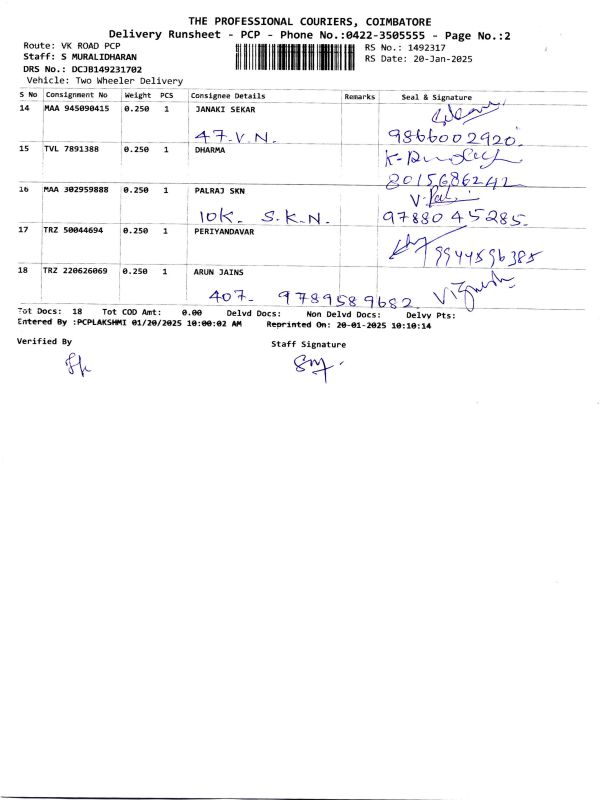 THE PROFESSIONAL COURIERS, COIMBATORE
Delivery Runsheet - PCP - Phone No.:0422-3505555 - Page No.:2
Route: VK ROAD PCP
RS No.: 1492317
Staff: S MURALIDHARAN
RS Date: 20-Jan-2025
DRS No.: DCJB149231702
Vehicle: Two Wheeler Delivery
S No Consignment No Weight PCS Consignee Details Remarks Seal & Signature
14 MAA 945090415 0.250 1 JANAKI SEKAR
47.V.N. 9866002920.
15 TVL 7891388 0.250 1 DHARMA
8015686242
16 MAA 302959888 0.250 1 PALRAJ SKN
10K. S.K.N. 9788045285.
17 TRZ 50044694 0.250 1 PERIYANDAVAR
9944596385
18 TRZ 220626069 0.250 1 ARUN JAINS
407. 9789589682 Vignesh
Tot Docs: 18 Tot COD Amt: 0.00 Delvd Docs: Non Delvd Docs: Delvy Pts:
Entered By :PCPLAKSHMI 01/20/2025 10:00:02 AM Reprinted On: 20-01-2025 10:10:14
Verified By
Staff Signature